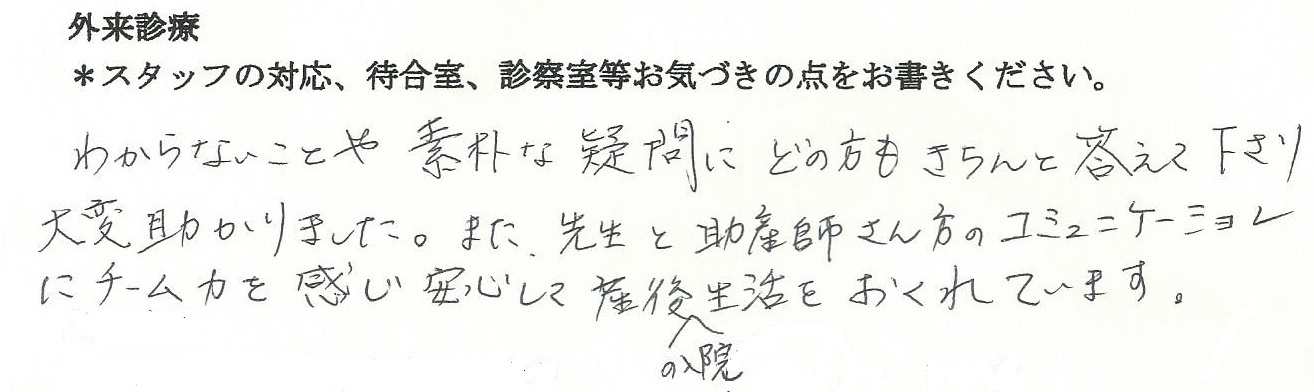 外来診療
＊スタッフの対応、待合室、診察室等お気づきの点をお書きください。
わからないことや素朴な疑問にどの方もきちんと答えて下さり
大変助かりました。また、先生と助産師さん方のコミュニケーション
にチーム力を感じ安心して産後生活をおくれています。
の入院